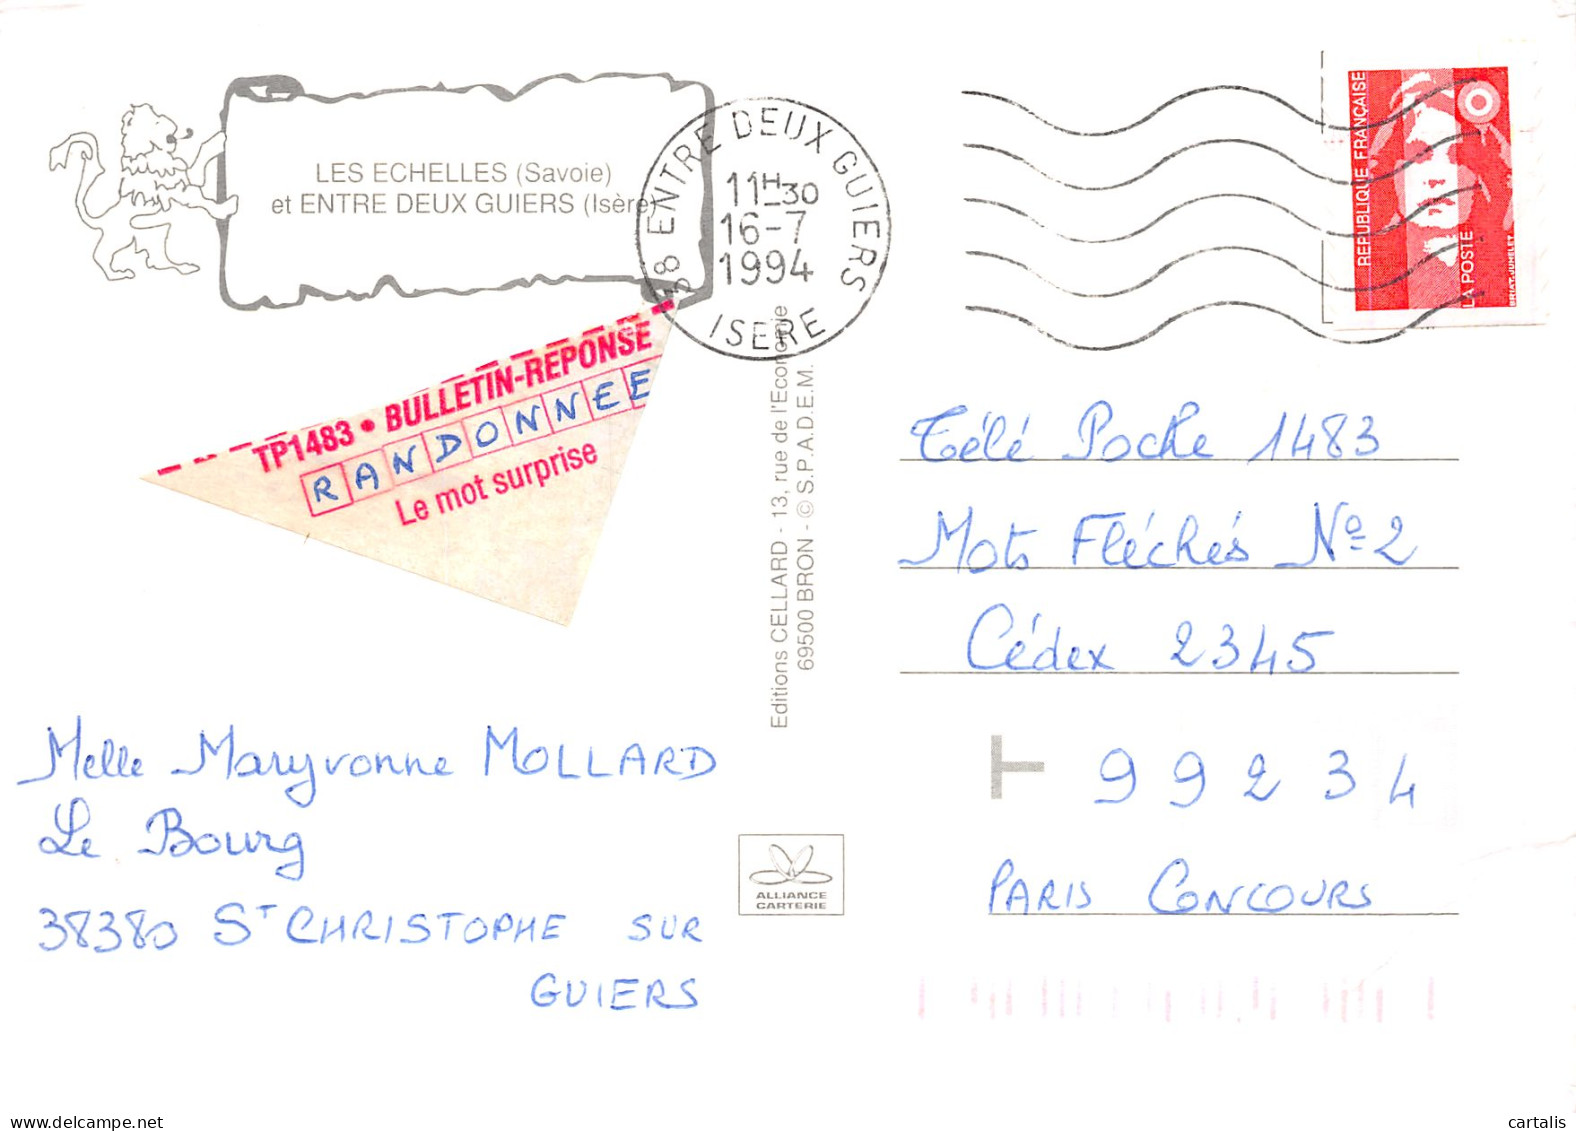 LES ECHELLES (Savoie)
et ENTRE DEUX GUIERS (Isère)
38 ENTRE DEUX GUIERS
11H30
16-7
1994
ISERE
REPUBLIQUE FRANÇAISE
LA POSTE
BRIAT-JUMELET
TP1483 • BULLETIN-REPONSE
RANDONNEE
Le mot surprise
Editions CELLARD - 13, rue de l'Economie
69500 BRON - © S.P.A.D.E.M.
Télé Poche 1483
Mots Fléchés Nº2
Cédex 2345
99234
PARIS CONCOURS
Melle Maryvonne MOLLARD
Le Bourg
38380 ST CHRISTOPHE SUR
GUIERS
ALLIANCE
CARTERIE
cartalis